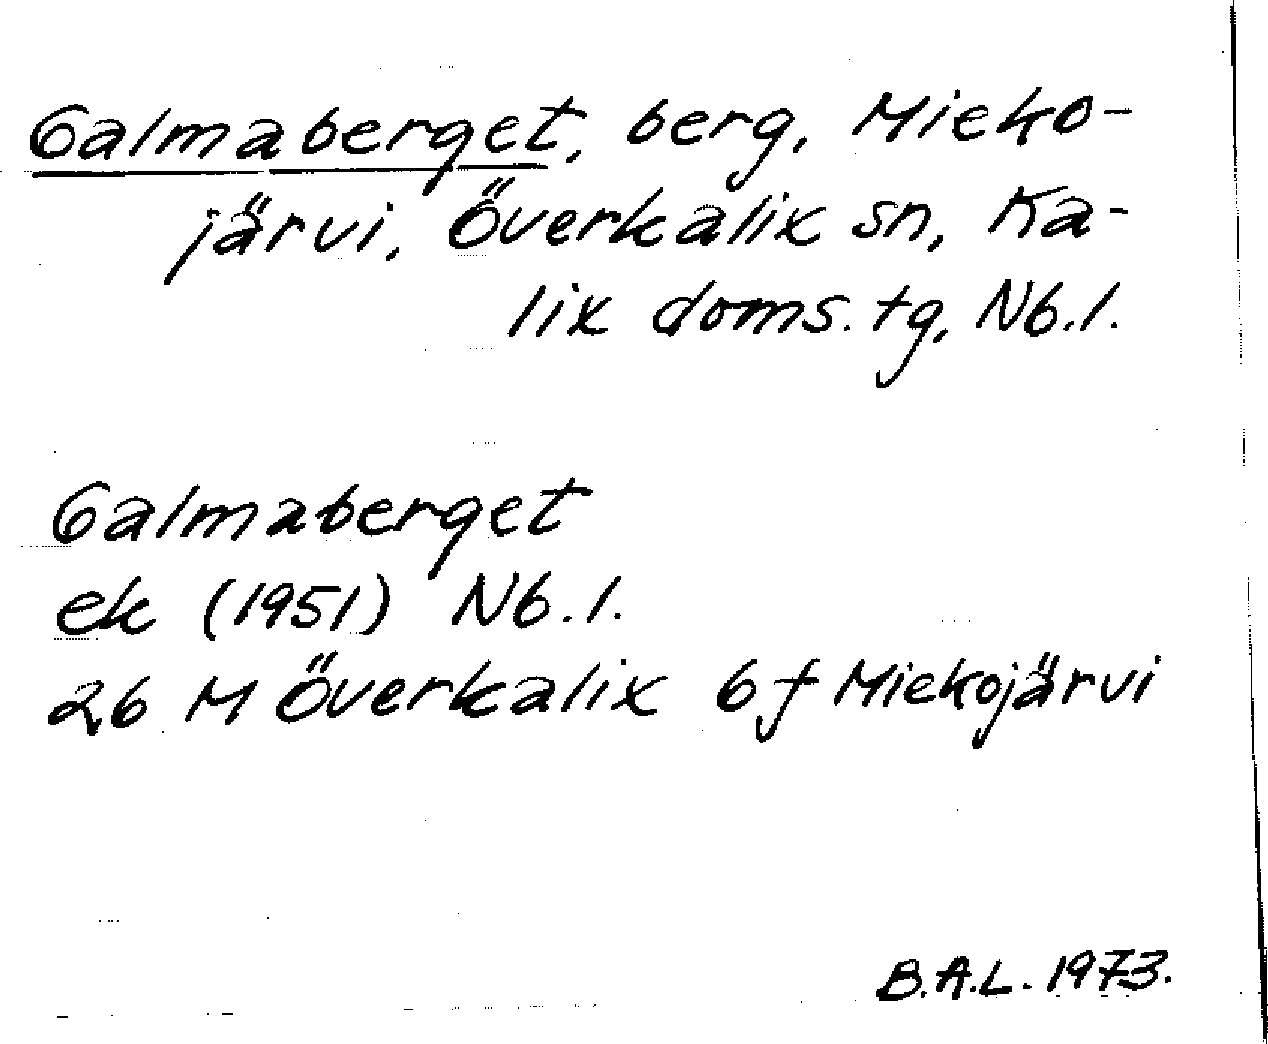 Galmaberget, berg, Mieko-
järvi, Överkalix sn, Ka-
lix doms. tg, Nb.l.
Galmaberget
ek (1951) Nb.l.
26 M Överkalix 6f Miekojärvi
B.A.L. 1973.